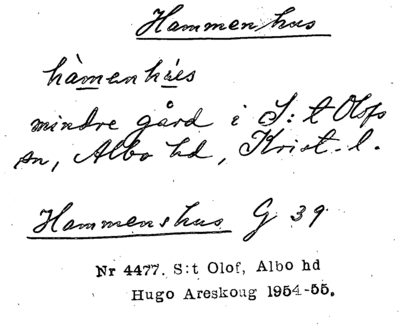 Hammenhus
hàmenhúes
mindre gård i S:t Olofs
sn, Albo hd, Krist. l.
Hammenshus G 39
Nr 4477. S:t Olof, Albo hd
Hugo Areskoug 1954-55.